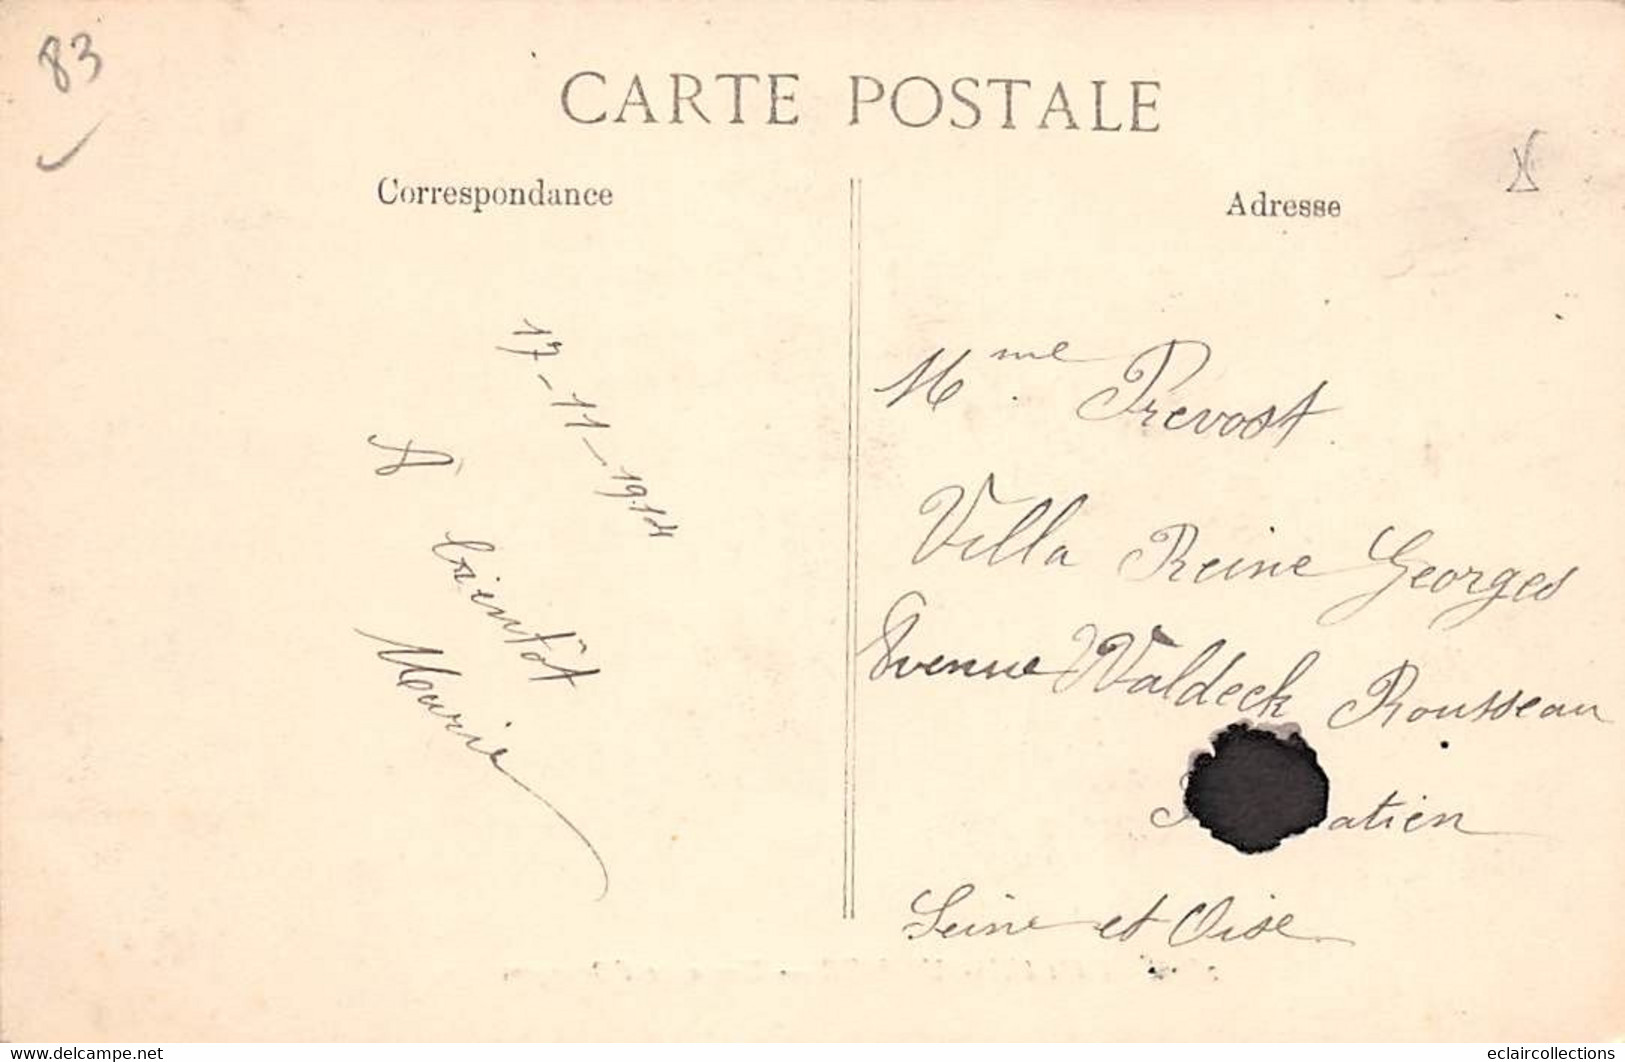 83
CARTE POSTALE
Correspondance
Adresse
17-11-1914
À bientôt
Marie
Mme Prevost
Villa Reine Georges
Avenue Waldeck Rousseau
Seine et Oise
delcampe.net
eclaircollections